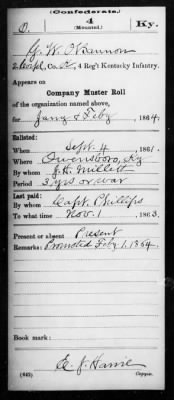 (Confederate.)
O. 4 Ky.
(Mounted)
G. W. O'Bannon
2 Corpl, Co. A, 4 Reg't Kentucky Infantry.
Appears on
Company Muster Roll
of the organization named above,
for Jany & Feby, 1864.
Enlisted:
When Sept. 4, 1861.
Where Owensboro, Ky
By whom J. H. Millett
Period 3 yrs or war
Last paid:
By whom Capt. Phillips
To what time Nov. 1, 1863.
Present or absent Present
Remarks: Promoted Feby 1. 1864.
Book mark:
E. J. Harrie
(642) Copyist.